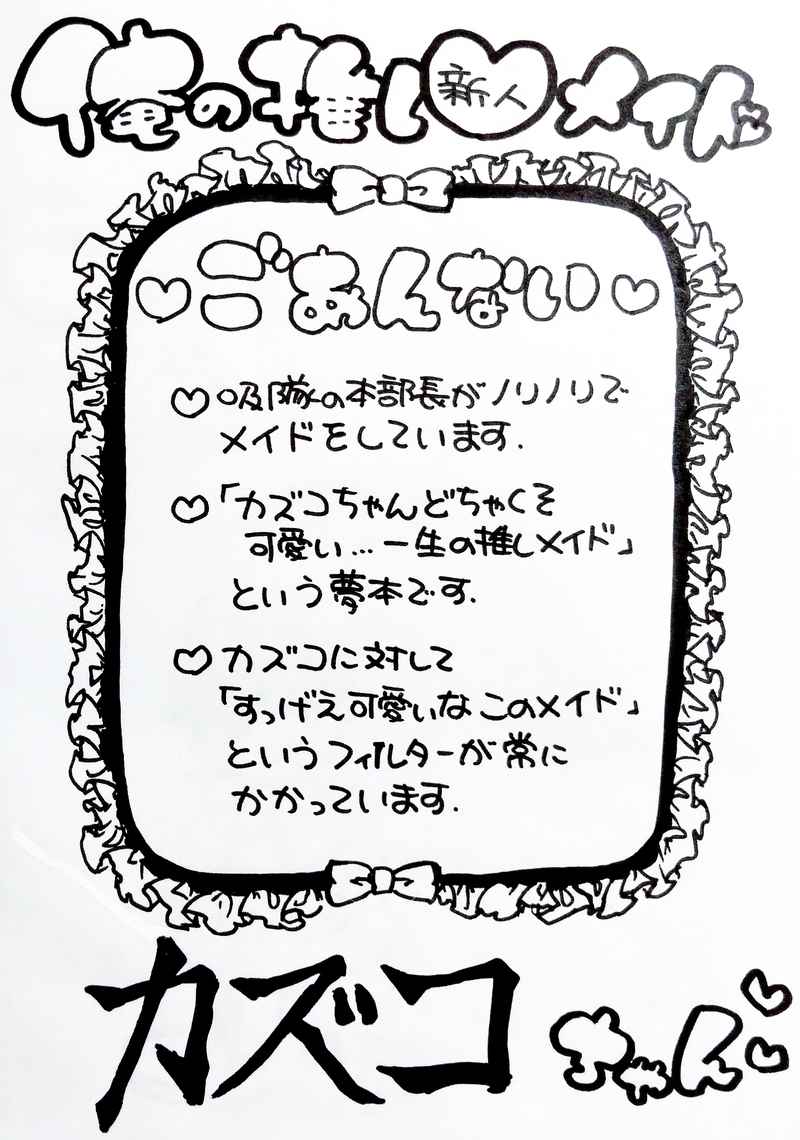 俺の推し新人メイド
ごあんない
吸隊の本部長がノリノリで
メイドをしています.
「カズコちゃんどちゃくそ
可愛い…一生の推しメイド」
という夢本です.
カズコに対して
「すっげえ可愛いなこのメイド」
というフィルターが常に
かかっています.
カズコちゃん